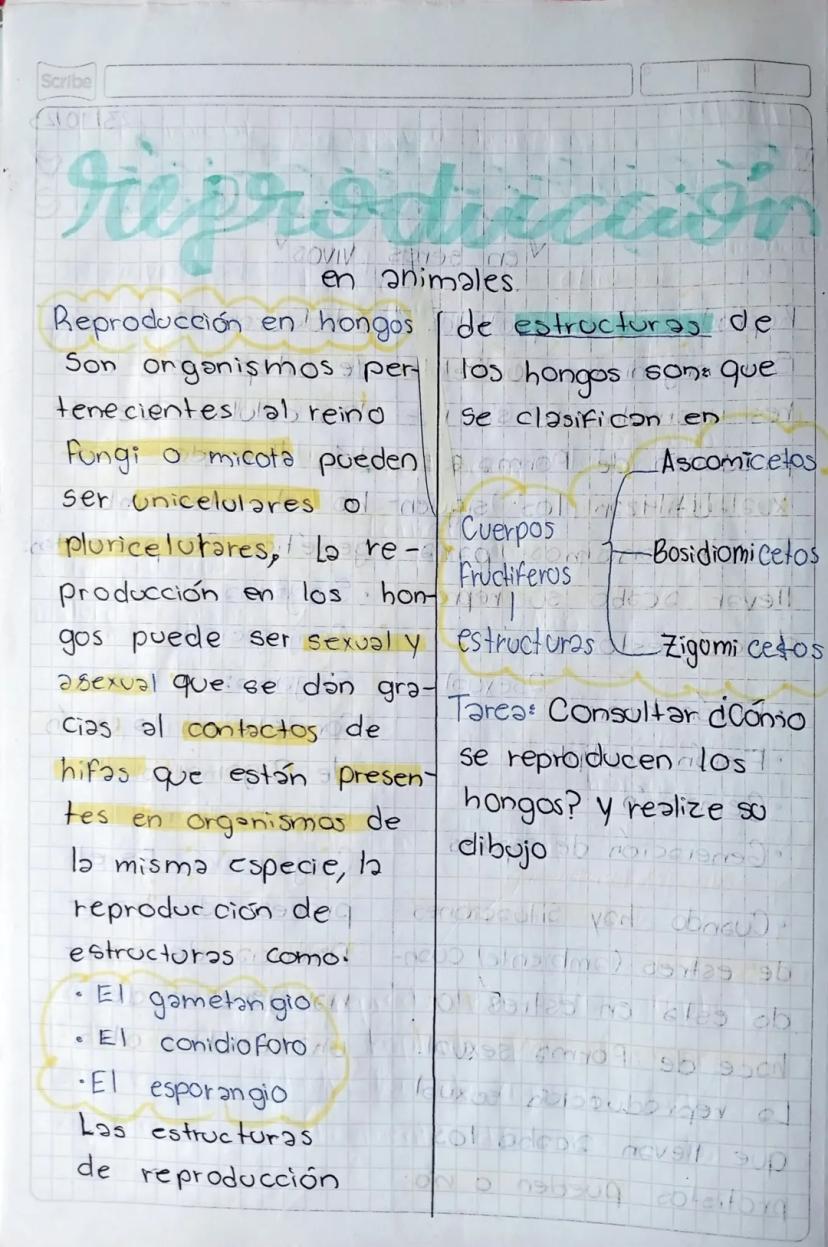 Scribe
reproducción
en animales.
Reproducción en hongos
Son organismos per-
tenecientes al reino
fungi o micota pueden
ser unicelulares o
pluricelulares, La re-
producción en los hon-
gos puede ser sexual y
asexual que se dán gra-
cias al contactos de
hifas que están presen-
tes en organismos de
la misma especie, la
reproducción de
estructuras como.
· El gametangio
· El conidioforo
· El esporangio
Las estructuras
de reproducción
de estructuras de
los hongos son: que
se clasifican en
Ascomicetos
Cuerpos
Bosidiomicetos
Fructiferos
estructuras
Zigomicetos
Tarea: Consultar ¿Cómo
se reproducen los
hongos? y realize su
dibujo